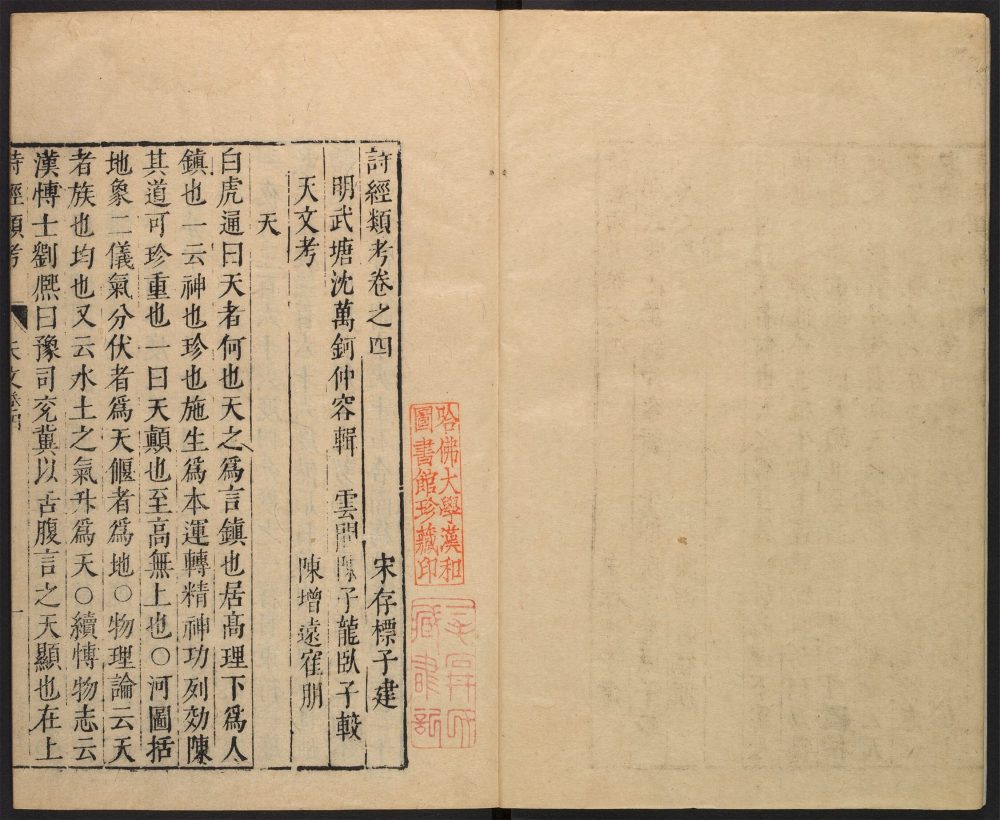 詩經類考卷之四
宋存標子建
明武塘沈萬鈳仲容輯 雲間陳子龍臥子較
天文考 陳增遠寉朋
天
白虎通曰天者何也天之爲言鎮也居高理下爲人
鎮也一云神也珍也施生爲本運轉精神功列効陳
其道可珍重也一曰天顚也至高無上也○河圖括
地象二儀氣分伏者爲天偃者爲地○物理論云天
者族也均也又云水土之氣升爲天○續愽物志云
漢愽士劉熈曰豫司兖冀以舌腹言之天顯也在上
詩經類考 天文卷四 一
哈佛大學漢和
圖書館珍藏印